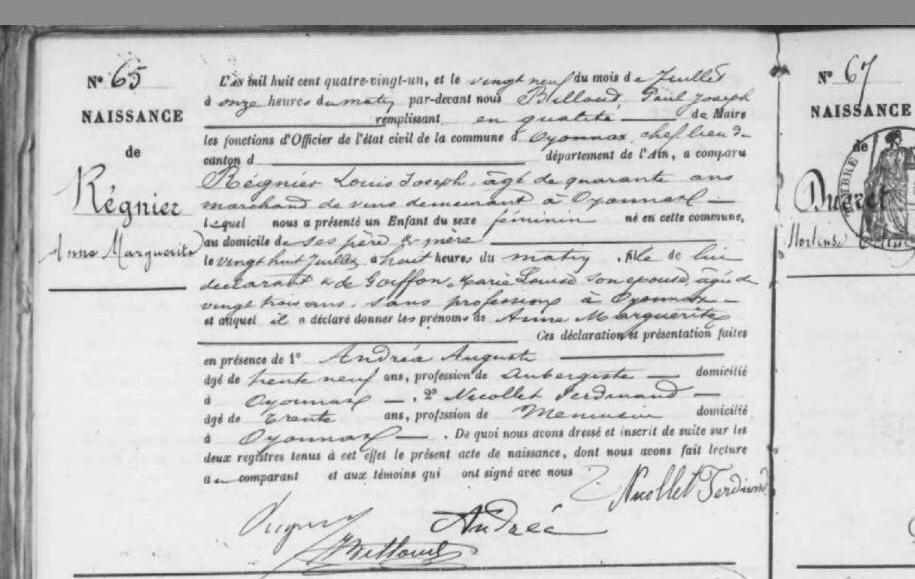 Nº 65
NAISSANCE
de
Régnier
Anne Marguerite
L'an mil huit cent quatre-vingt-un, et le vingt neuf du mois de Juillet
à onze heures du matin par-devant nous Billoud, Paul Joseph
remplissant en qualité de Maire
les fonctions d'Officier de l'état civil de la commune d'Oyonnax, chef lieu de
canton d département de l'Ain, a comparu
Régnier Louis Joseph, âgé de quarante ans
marchand de vins demeurant à Oyonnax
lequel nous a présenté un Enfant du sexe féminin né en cette commune,
au domicile de ses père & mère
le vingt huit Juillet à huit heures du matin, fille de lui
déclarant & de Goiffon, Marie Louise son épouse, âgée de
vingt trois ans, sans profession, à Oyonnax
et auquel il a déclaré donner les prénoms de Anne Marguerite
Ces déclaration et présentation faites
en présence de 1º Andréa Auguste
âgé de trente neuf ans, profession de Aubergiste domicilié
à Oyonnax, 2º Nicollet Ferdinand
âgé de trente ans, profession de Menuisier domicilié
à Oyonnax. De quoi nous avons dressé et inscrit de suite sur les
deux registres tenus à cet effet le présent acte de naissance, dont nous avons fait lecture
au comparant et aux témoins qui ont signé avec nous
Nicollet Ferdinand
Andréa
Billoud
Nº 67
NAISSANCE
de
Ducret
Hortense